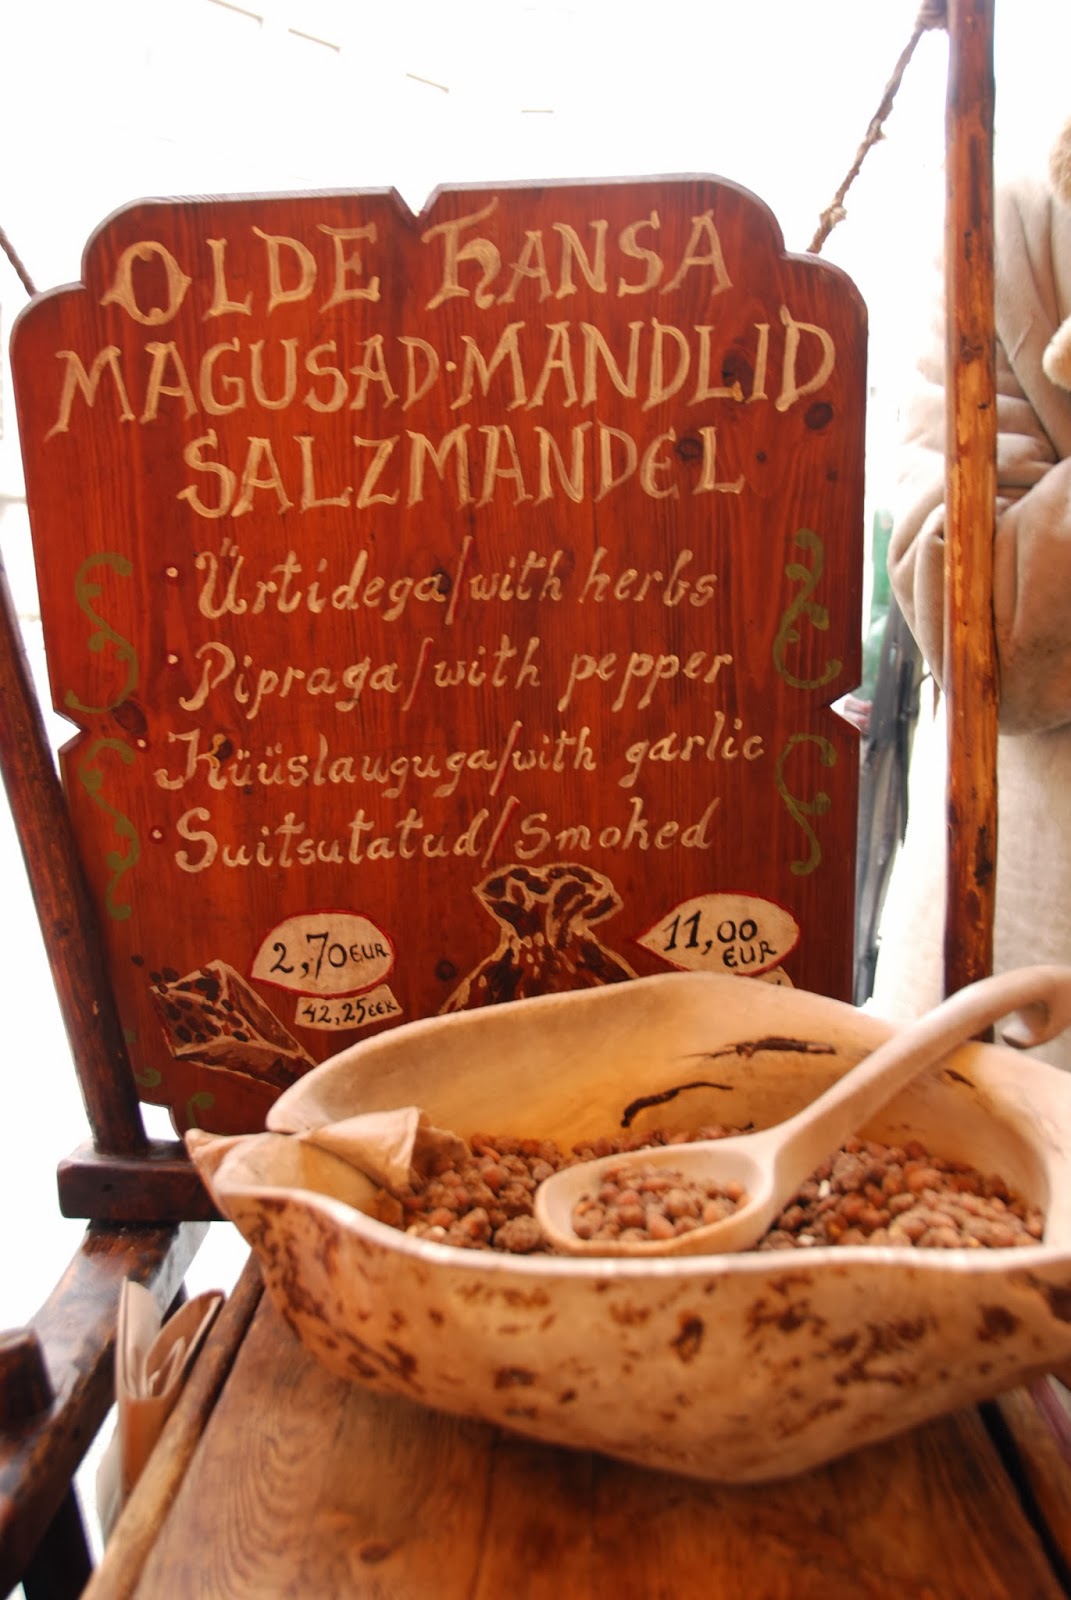 OLDE HANSA
MAGUSAD·MANDLID
SALZMANDEL
• Ürtidega/with herbs
• Pipraga/with pepper
• Küüslauguga/with garlic
• Suitsutatud/Smoked
2,70 EUR
42,25 EEK
11,00
EUR